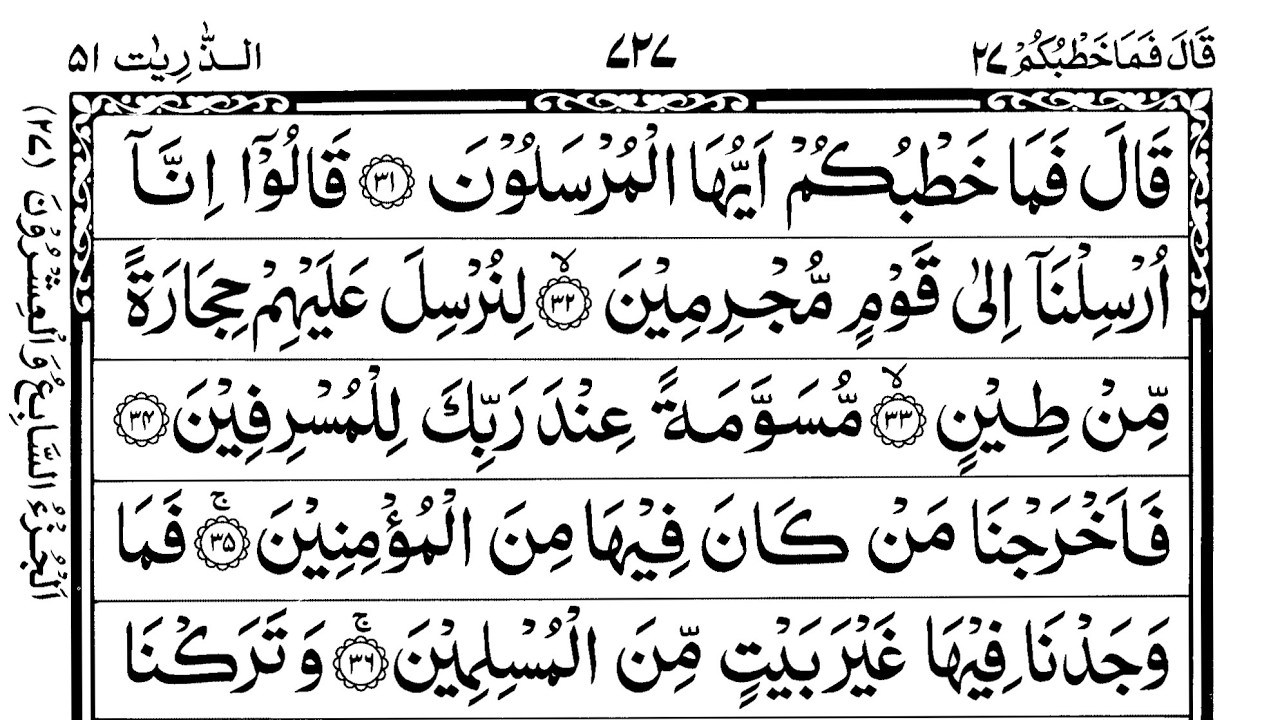 قَالَ فَمَا خَطْبُكُمْ ٢٧
٧٢٧
الذّٰرِيٰت ٥١
قَالَ فَمَا خَطْبُكُمْ اَيُّهَا الْمُرْسَلُوْنَ ﴿۳۱﴾ قَالُوْۤا اِنَّاۤ
اُرْسِلْنَاۤ اِلٰى قَوْمٍ مُّجْرِمِيْنَ ﴿۳۲﴾ۙ لِنُرْسِلَ عَلَيْهِمْ حِجَارَةً
مِّنْ طِيْنٍ ﴿۳۳﴾ۙ مُّسَوَّمَةً عِنْدَ رَبِّكَ لِلْمُسْرِفِيْنَ ﴿۳۴﴾
فَاَخْرَجْنَا مَنْ كَانَ فِيْهَا مِنَ الْمُؤْمِنِيْنَ ﴿۳۵﴾ۚ فَمَا
وَجَدْنَا فِيْهَا غَيْرَ بَيْتٍ مِّنَ الْمُسْلِمِيْنَ ﴿۳۶﴾ۚ وَتَرَكْنَا
اَلْجُزْءُ السَّابِعُ وَالْعِشْرُوْنَ (٢٧)